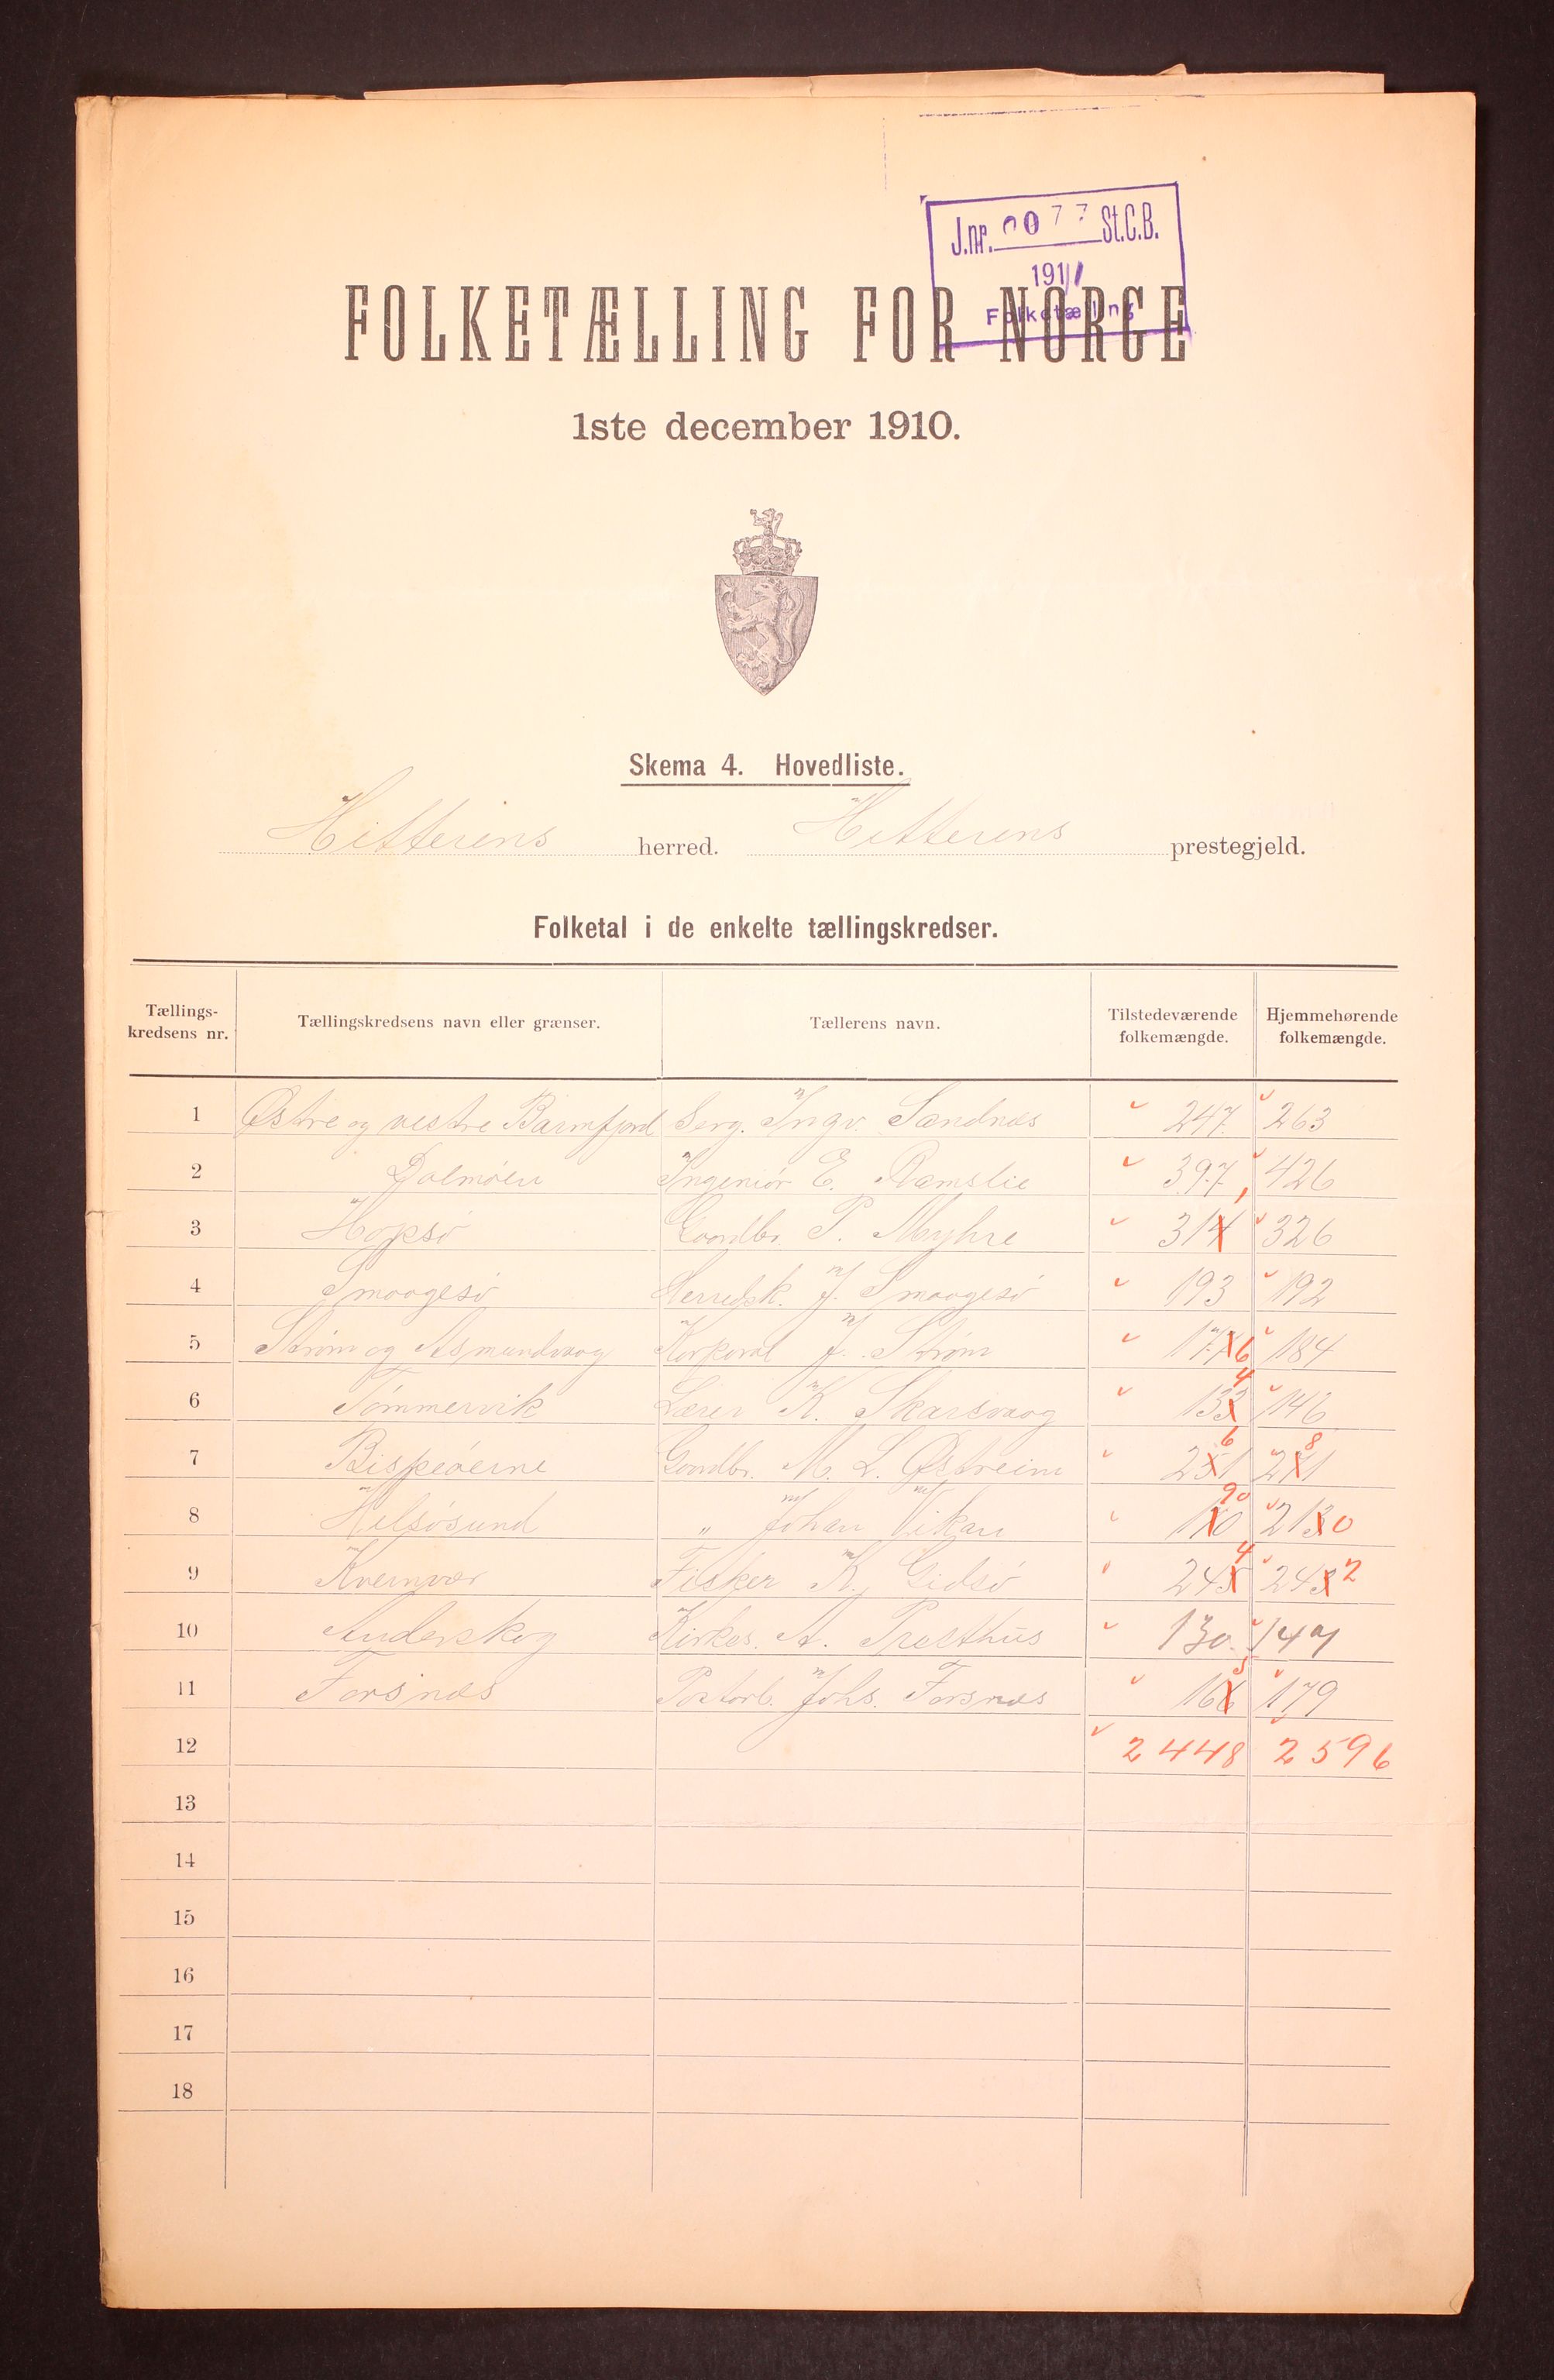 J.nr. 0077 St.C.B.
1911
Folketælling
FOLKETÆLLING FOR NORGE
1ste december 1910.
Skema 4. Hovedliste.
Hitterens herred. Hitterens prestegjeld.
Folketal i de enkelte tællingskredser.
Tællings-kredsens nr. Tællingskredsens navn eller grænser. Tællerens navn. Tilstedeværende folkemængde. Hjemmehørende folkemængde.
1 Østre og vestre Barmfjord Serg. Ingv. Sandnæs 247 263
2 Dolmöen Ingeniör E. Ramslie 397 426
3 Hopsö Gaardbr. P. Myhre 314 1 326
4 Smaagesö Herredsk. J. Smaagesö 193 192
5 Ström og Asmundvaag Korporal J. Ström 177 6 184
6 Tömmervik Lærer K. Skarsvaag 133 4 146
7 Bispöerne Gaardbr. M. L. Østreim 251 6 271 8
8 Helsösund " Johan Vikan 110 90 213 0
9 Kvernvær Fisker K. Gidsö 245 4 243 2
10 Anderskog Kirkes. A. Presthus 130 147
11 Forsnæs Postorb. Johs. Forsnæs 166 5 179
12 2448 2596
13
14
15
16
17
18